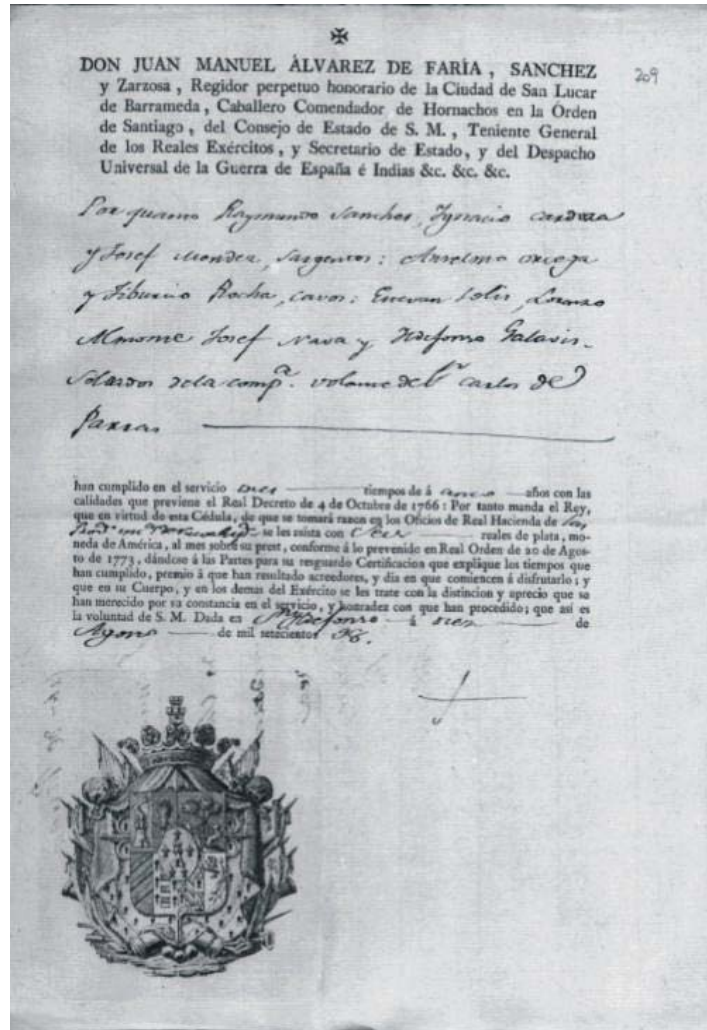 DON JUAN MANUEL ÁLVAREZ DE FARÍA, SANCHEZ
209
y Zarzosa, Regidor perpetuo honorario de la Ciudad de San Lucar
de Barrameda, Caballero Comendador de Hornachos en la Órden
de Santiago, del Consejo de Estado de S. M., Teniente General
de los Reales Exércitos, y Secretario de Estado, y del Despacho
Universal de la Guerra de España é Indias &c. &c. &c.
Por quanto Raymundo Sanchez, Ygnacio
y Josef Mendez, Sargentos: Anselmo Ortega
y Tiburcio Rocha, cavos: Estevan Solis, Lorenzo
Josef Nava y Ildefonso
Soldados de la compª. volante de Sⁿ. Carlos de
Parras
han cumplido en el servicio tiempos de á años con las
calidades que previene el Real Decreto de 4 de Octubre de 1766: Por tanto manda el Rey,
que en virtud de esta Cédula, de que se tomará razon en los Oficios de Real Hacienda de
se les asista con reales de plata, mo-
neda de América, al mes sobre su prest, conforme á lo prevenido en Real Orden de 20 de Agos-
to de 1773, dándose á las Partes para su resguardo Certificacion que explique los tiempos que
han cumplido, premio á que han resultado acreedores, y dia en que comiencen á disfrutarlo; y
que en su Cuerpo, y en los demas del Exército se les trate con la distincion y aprecio que se
han merecido por su constancia en el servicio, y honradez con que han procedido; que así es
la voluntad de S. M. Dada en Sⁿ Ildefonso á diez de
Agosto de mil setecientos 96.